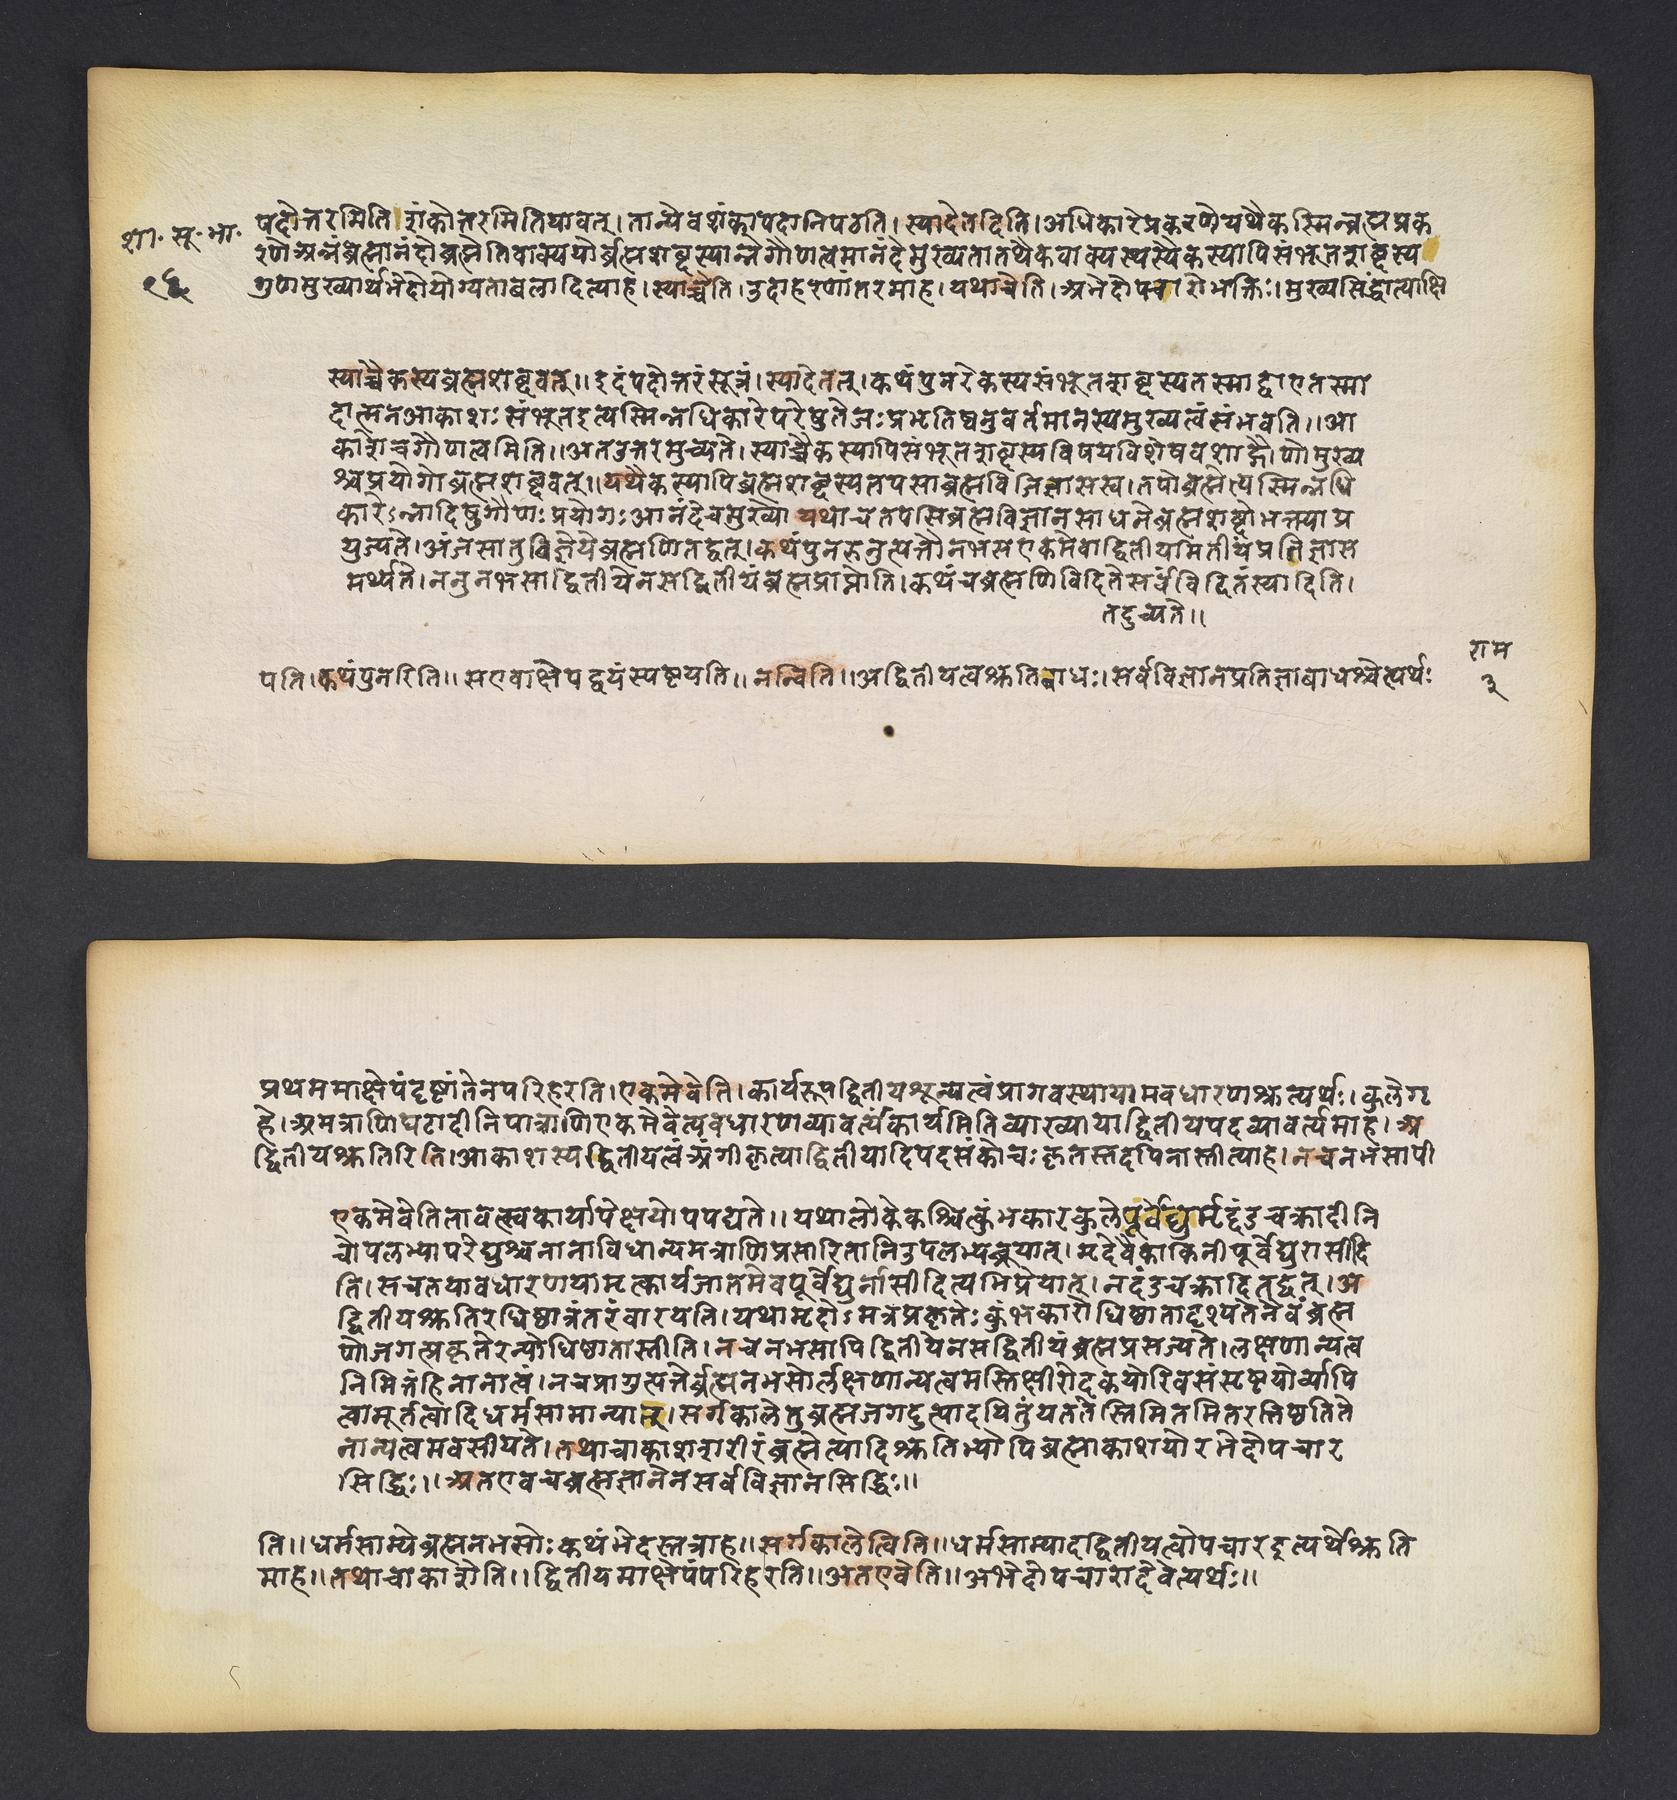 शा. सू. भा.
पदोत्तरमिति। शंकोत्तरमितियावत्। तान्येवशंकापदानिपठति। स्यादेतदिति। अधिकारेप्रकरणेयथैकस्मिन्ब्रह्मप्रक
रणेअन्नंब्रह्मानंदोब्रह्मेतिवाक्ययोर्ब्रह्मशब्दस्यान्नेगौणत्वमानंदेमुख्यतातथैकवाक्यस्थस्यैकस्यापिसंभूतशब्दस्य
गुणमुख्यार्थभेदोयोग्यताबलादित्याह। स्याच्चेति। उदाहरणांतरमाह। यथाचेति। अभेदोपचारोभक्तिः। मुख्यसिद्धात्याक्षि
स्याच्चैकस्यब्रह्मशब्दवत्॥ इदंपदोत्तरंसूत्रं। स्यादेतत्। कथंपुनरेकस्यसंभूतशब्दस्यतस्माद्वाएतस्मा
दात्मनआकाशः संभूतइत्यस्मिन्नधिकारेपरेषुतेजःप्रभृतिष्वनुवर्तमानस्यमुख्यत्वंसंभवति॥ आ
काशेचगौणत्वमिति॥ अतउत्तरमुच्यते। स्याच्चैकस्यापिसंभूतशब्दस्यविषयविशेषवशाद्गौणोमुख्य
श्चप्रयोगोब्रह्मशब्दवत्॥ यथैकस्यापिब्रह्मशब्दस्यतपसाब्रह्मविजिज्ञासस्व। तपोब्रह्मेत्यस्मिन्नधि
कारेऽन्नादिषुगौणःप्रयोगः आनंदेचमुख्यो यथाचतपसिब्रह्मविज्ञानसाधनेब्रह्मशब्दोभक्त्याप्र
युज्यते। अंजसातुविज्ञेयेब्रह्मणितद्वत्। कथंपुनरनुत्पत्तौनभसएकमेवाद्वितीयमितीयंप्रतिज्ञास
मर्थ्यते। ननुनभसाद्वितीयेनसद्वितीयंब्रह्मप्राप्नोति। कथंचब्रह्मणिविदितेसर्वंविदितंस्यादिति।
तदुच्यते॥
राम
३
पति। कथंपुनरिति॥ सएवाक्षेपद्वयंस्पष्टयति॥ नन्विति॥ अद्वितीयत्वश्रुतिबाधः। सर्वविज्ञानप्रतिज्ञाबाधश्चेत्यर्थः
प्रथममाक्षेपंदृष्टांतेनपरिहरति। एकमेवेति। कार्यरूपद्वितीयशून्यत्वंप्रागवस्थायामवधारणश्रुत्यर्थः। कुलेगृ
हे। अमत्राणिघटादीनिपात्राणिएकमेवेत्यवधारणव्यावर्त्यंकार्यमितिव्याख्यायाद्वितीयपदव्यावर्त्यमाह। अ
द्वितीयश्रुतिरिति। आकाशस्यद्वितीयत्वंअंगीकृत्याद्वितीयादिपदसंकोचः कृतस्तदपिनास्तीत्याह। नचनभसापी
एकमेवेतितावत्स्वकार्यापेक्षयोपपद्यते॥ यथालोकेकश्चित्कुंभकारकुलेपूर्वेद्युर्मृद्दंडचक्रादीनि
चोपलभ्यापरेद्युश्चनानाविधान्यमत्राणिप्रसारितानिउपलभ्यब्रूयात्। मृदेवैकाकिनीपूर्वेद्युरासीदि
ति। सचतयावधारणयामृत्कार्यजातमेवपूर्वेद्युर्नासीदित्यभिप्रेयात्। नदंडचक्रादितद्वत्। अ
द्वितीयश्रुतिरधिष्ठात्रंतरंवारयति। यथामृदोऽमत्रप्रकृतेः कुंभकारोधिष्ठातादृश्यतेनैवंब्रह्म
णोजगत्प्रकृतेरन्योधिष्ठातास्तीति। नचनभसापिद्वितीयेनसद्वितीयंब्रह्मप्रसज्यते। लक्षणान्यत्व
निमित्तंहिनानात्वं। नचप्रागुत्पत्तेर्ब्रह्मनभसोर्लक्षणान्यत्वमस्तिक्षीरोदकयोरिवसंसृष्टयोर्व्यापि
त्वामूर्तत्वादिधर्मसामान्यात्। सर्गकालेतुब्रह्मजगदुत्पादयितुंयततेस्तिमितमितरत्तिष्ठतिते
नान्यत्वमवसीयते। तथाचाकाशशरीरंब्रह्मेत्यादिश्रुतिभ्योपिब्रह्माकाशयोरभेदोपचार
सिद्धिः॥ अतएवचब्रह्मज्ञानेनसर्वविज्ञानसिद्धिः॥
ति॥ धर्मसाम्येब्रह्मनभसोः कथंभेदस्तत्राह॥ सर्गकालेत्विति॥ धर्मसाम्यादद्वितीयत्वोपचारइत्यर्थेश्रुति
माह॥ तथाचाकाशेति॥ द्वितीयमाक्षेपंपरिहरति॥ अतएवेति॥ अभेदोपचारादेवेत्यर्थः॥